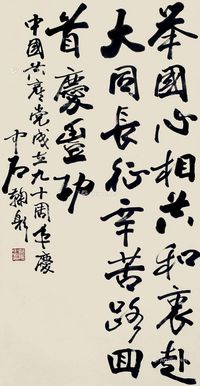 举國心相共和衷赴
大同長征辛苦路回
首慶豐功
中國共產党成立九十周年慶
中石鞠躬